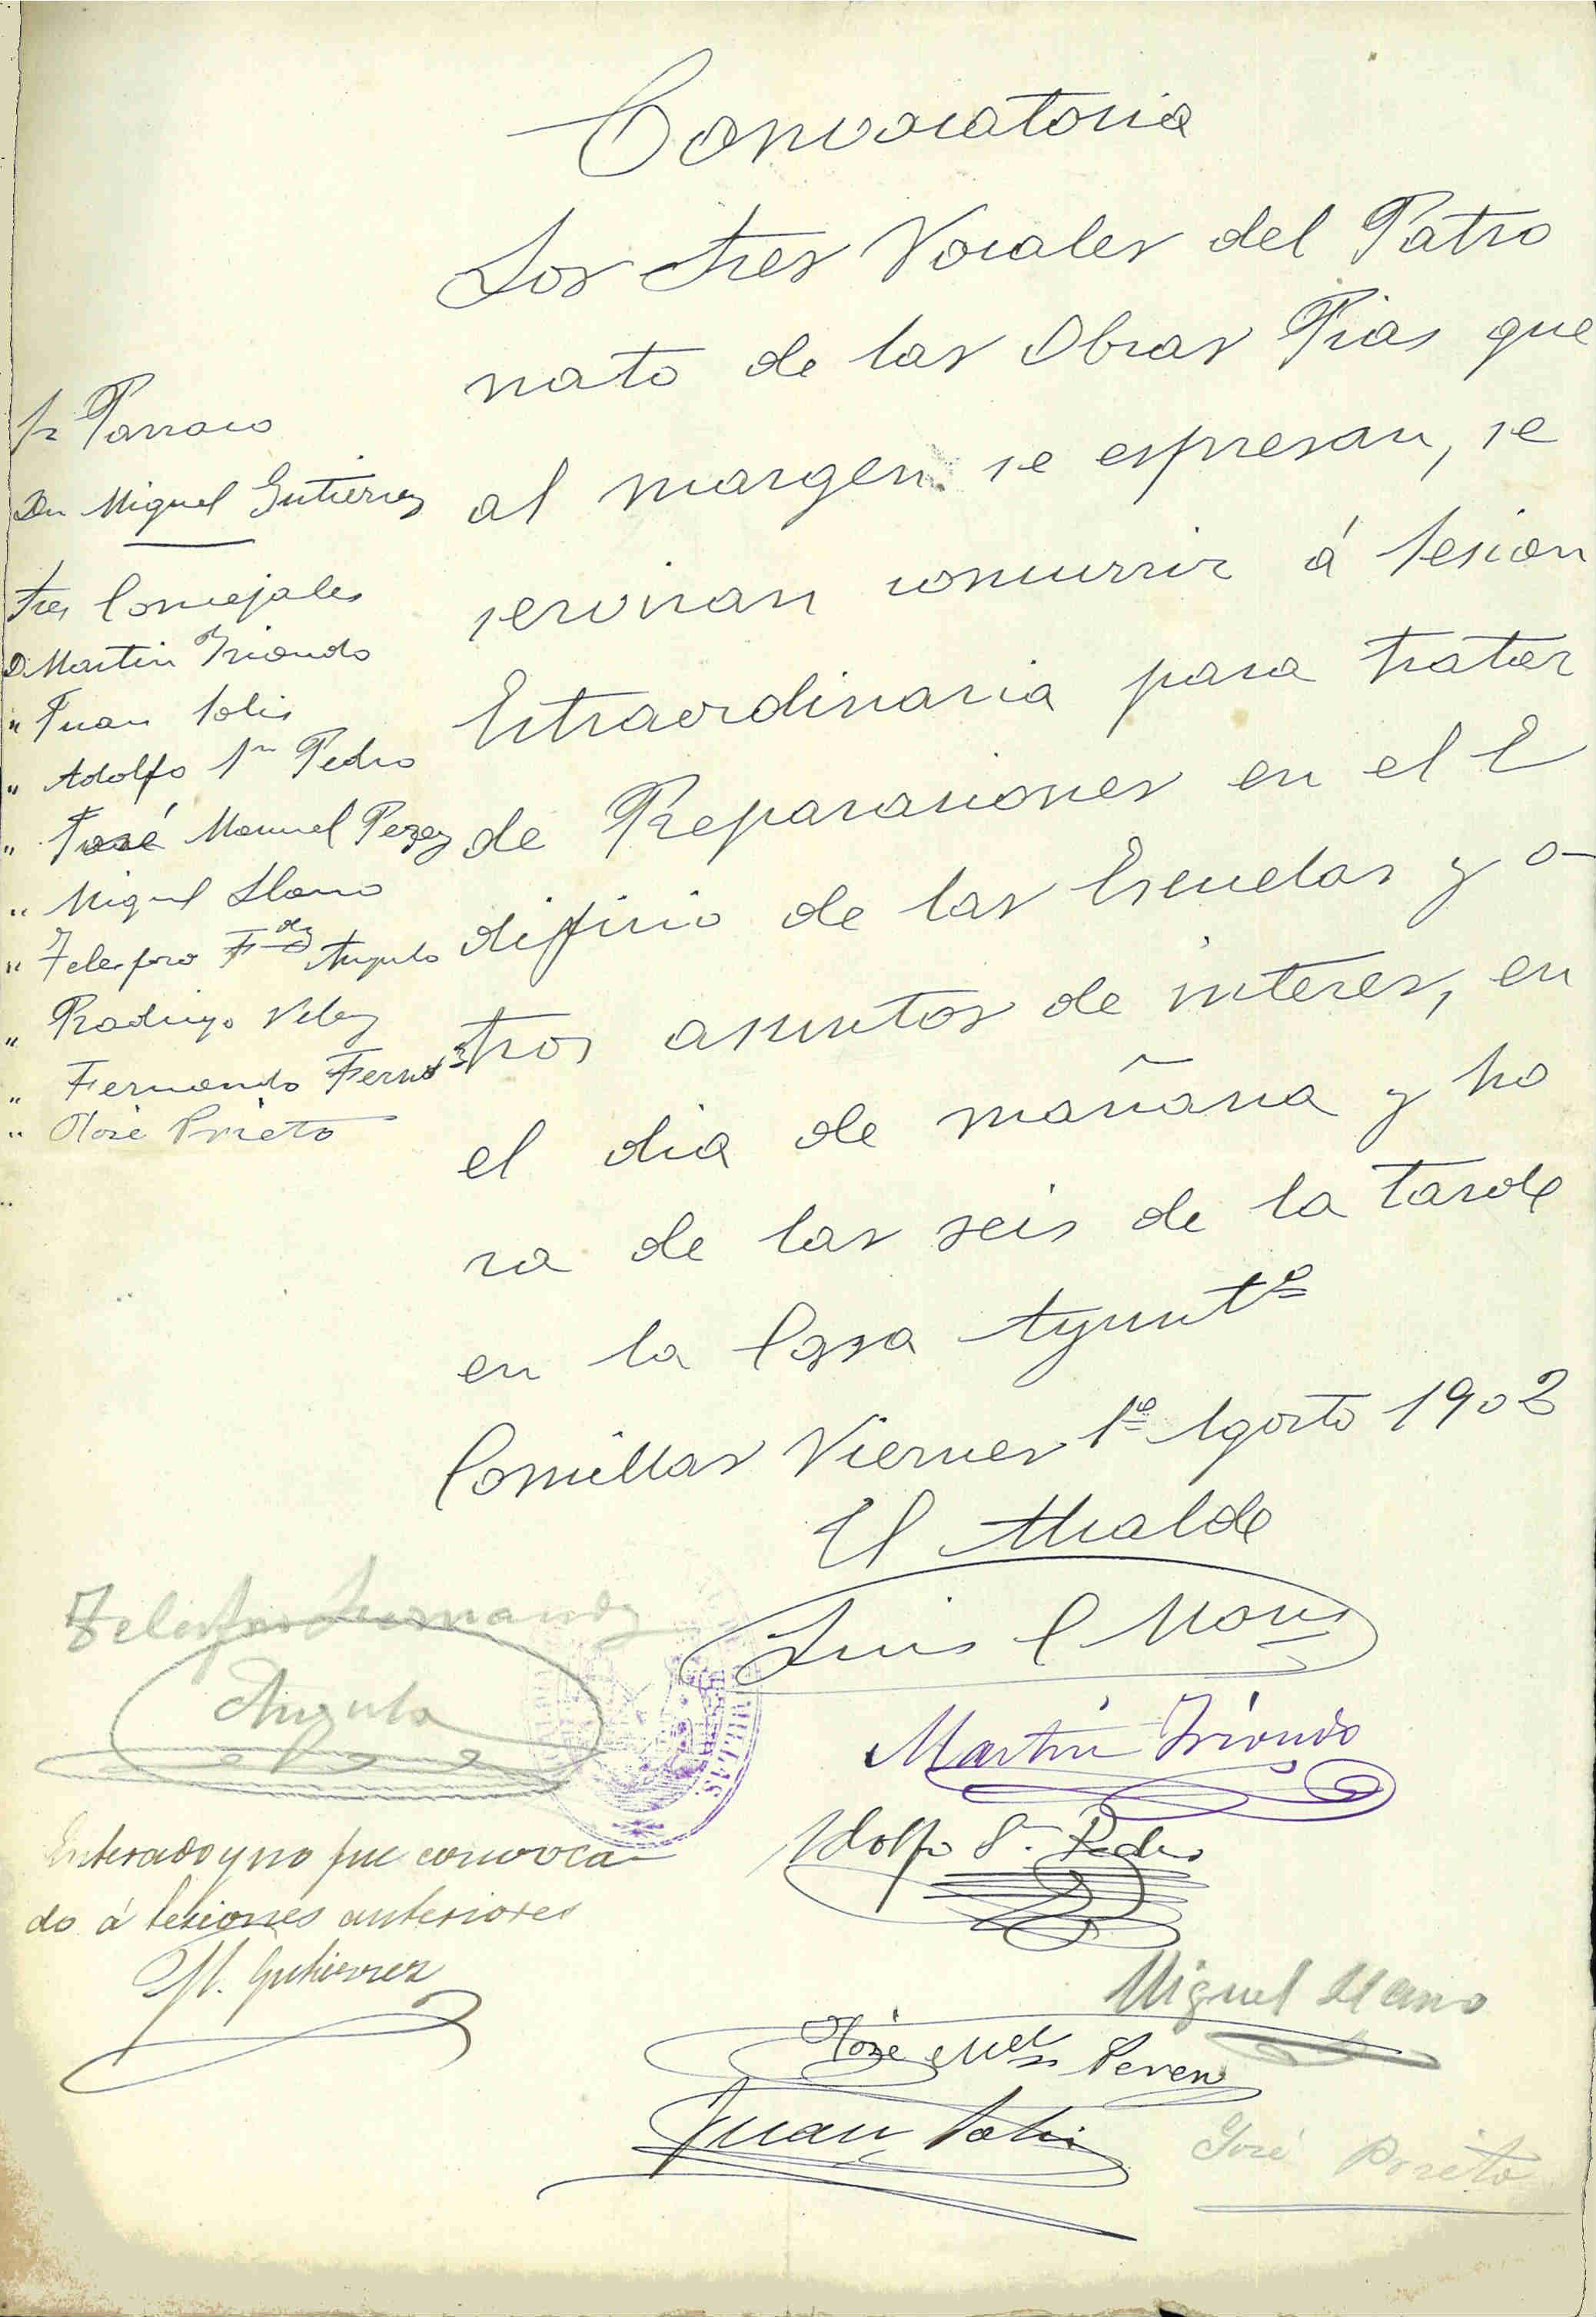 Convocatoria
Los tres Vocales del Patro
nato de las Obras Pias que
al margen se espresan, se
serviran concurrir á sesion
Estraordinaria para tratar
de Reparaciones en el E
dificio de las Escuelas y o-
tros asuntos de interes, en
el dia de mañana y ho
ra de las seis de la tarde
en la Casa Ayuntº
Comillas Viernes 1º Agosto 1902
El Alcalde
Sr Parroco
Dn Miguel Gutierrez
Tres Concejales
D. Martin Iriondo
" Juan Solis
" Adolfo Sn Pedro
" José Manuel Perez
" Miguel Llano
" Telesforo Fdez Angulo
" Rodrigo Velez
" Fernando Fernz
" José Prieto
Luis C
Martin Iriondo
Adolfo Sn Pedro
Miguel Llano
José Mel Perez
Juan Solis
José Prieto
Telesforo Fernandez
Angulo
Enterado y no fue convoca-
do á sesiones anteriores
M. Gutierrez